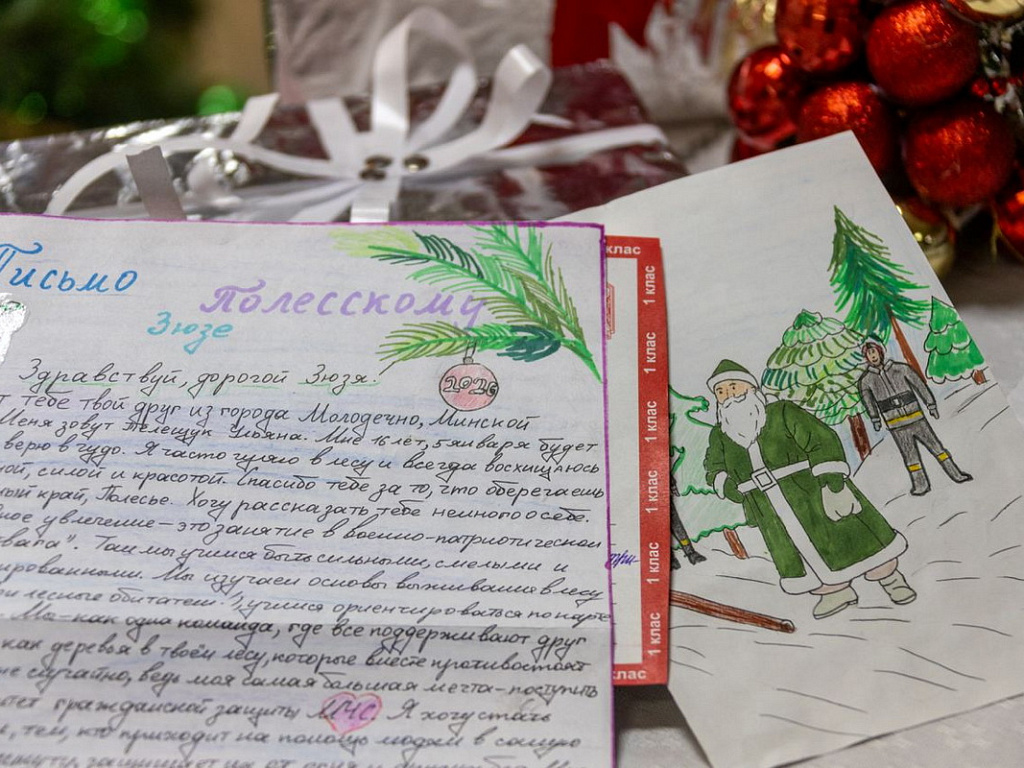 Письмо
Полесскому
Зюзе
Здравствуй, дорогой Зюзя.
2026
т тебе твой друг из города Молодечно, Минской
Меня зовут Телещук Ульяна. Мне 16 лет, 5 января будет
верю в чудо. Я часто гуляю в лесу и всегда восхищаюсь
ой, силой и красотой. Спасибо тебе за то, что оберегаешь
ный край, Полесье. Хочу рассказать тебе немного о себе.
ное увлечение – это занятие в военно-патриотическом
вага". Там мы учимся быть сильными, смелыми и
ированными. Мы изучаем основы выживания в лесу
лесные обитатели. учимся ориентироваться по карте
Мы – как одна команда, где все поддерживают друг
как деревья в твоём лесу, которые вместе противостоят
не случайно, ведь моя самая большая мечта – поступить
тет гражданской защиты МЧС Я хочу стать
тем, кто приходит на помощь людям в самую
клас
1 клас
1 клас
1 клас
1 клас
1 клас
1 клас
клас